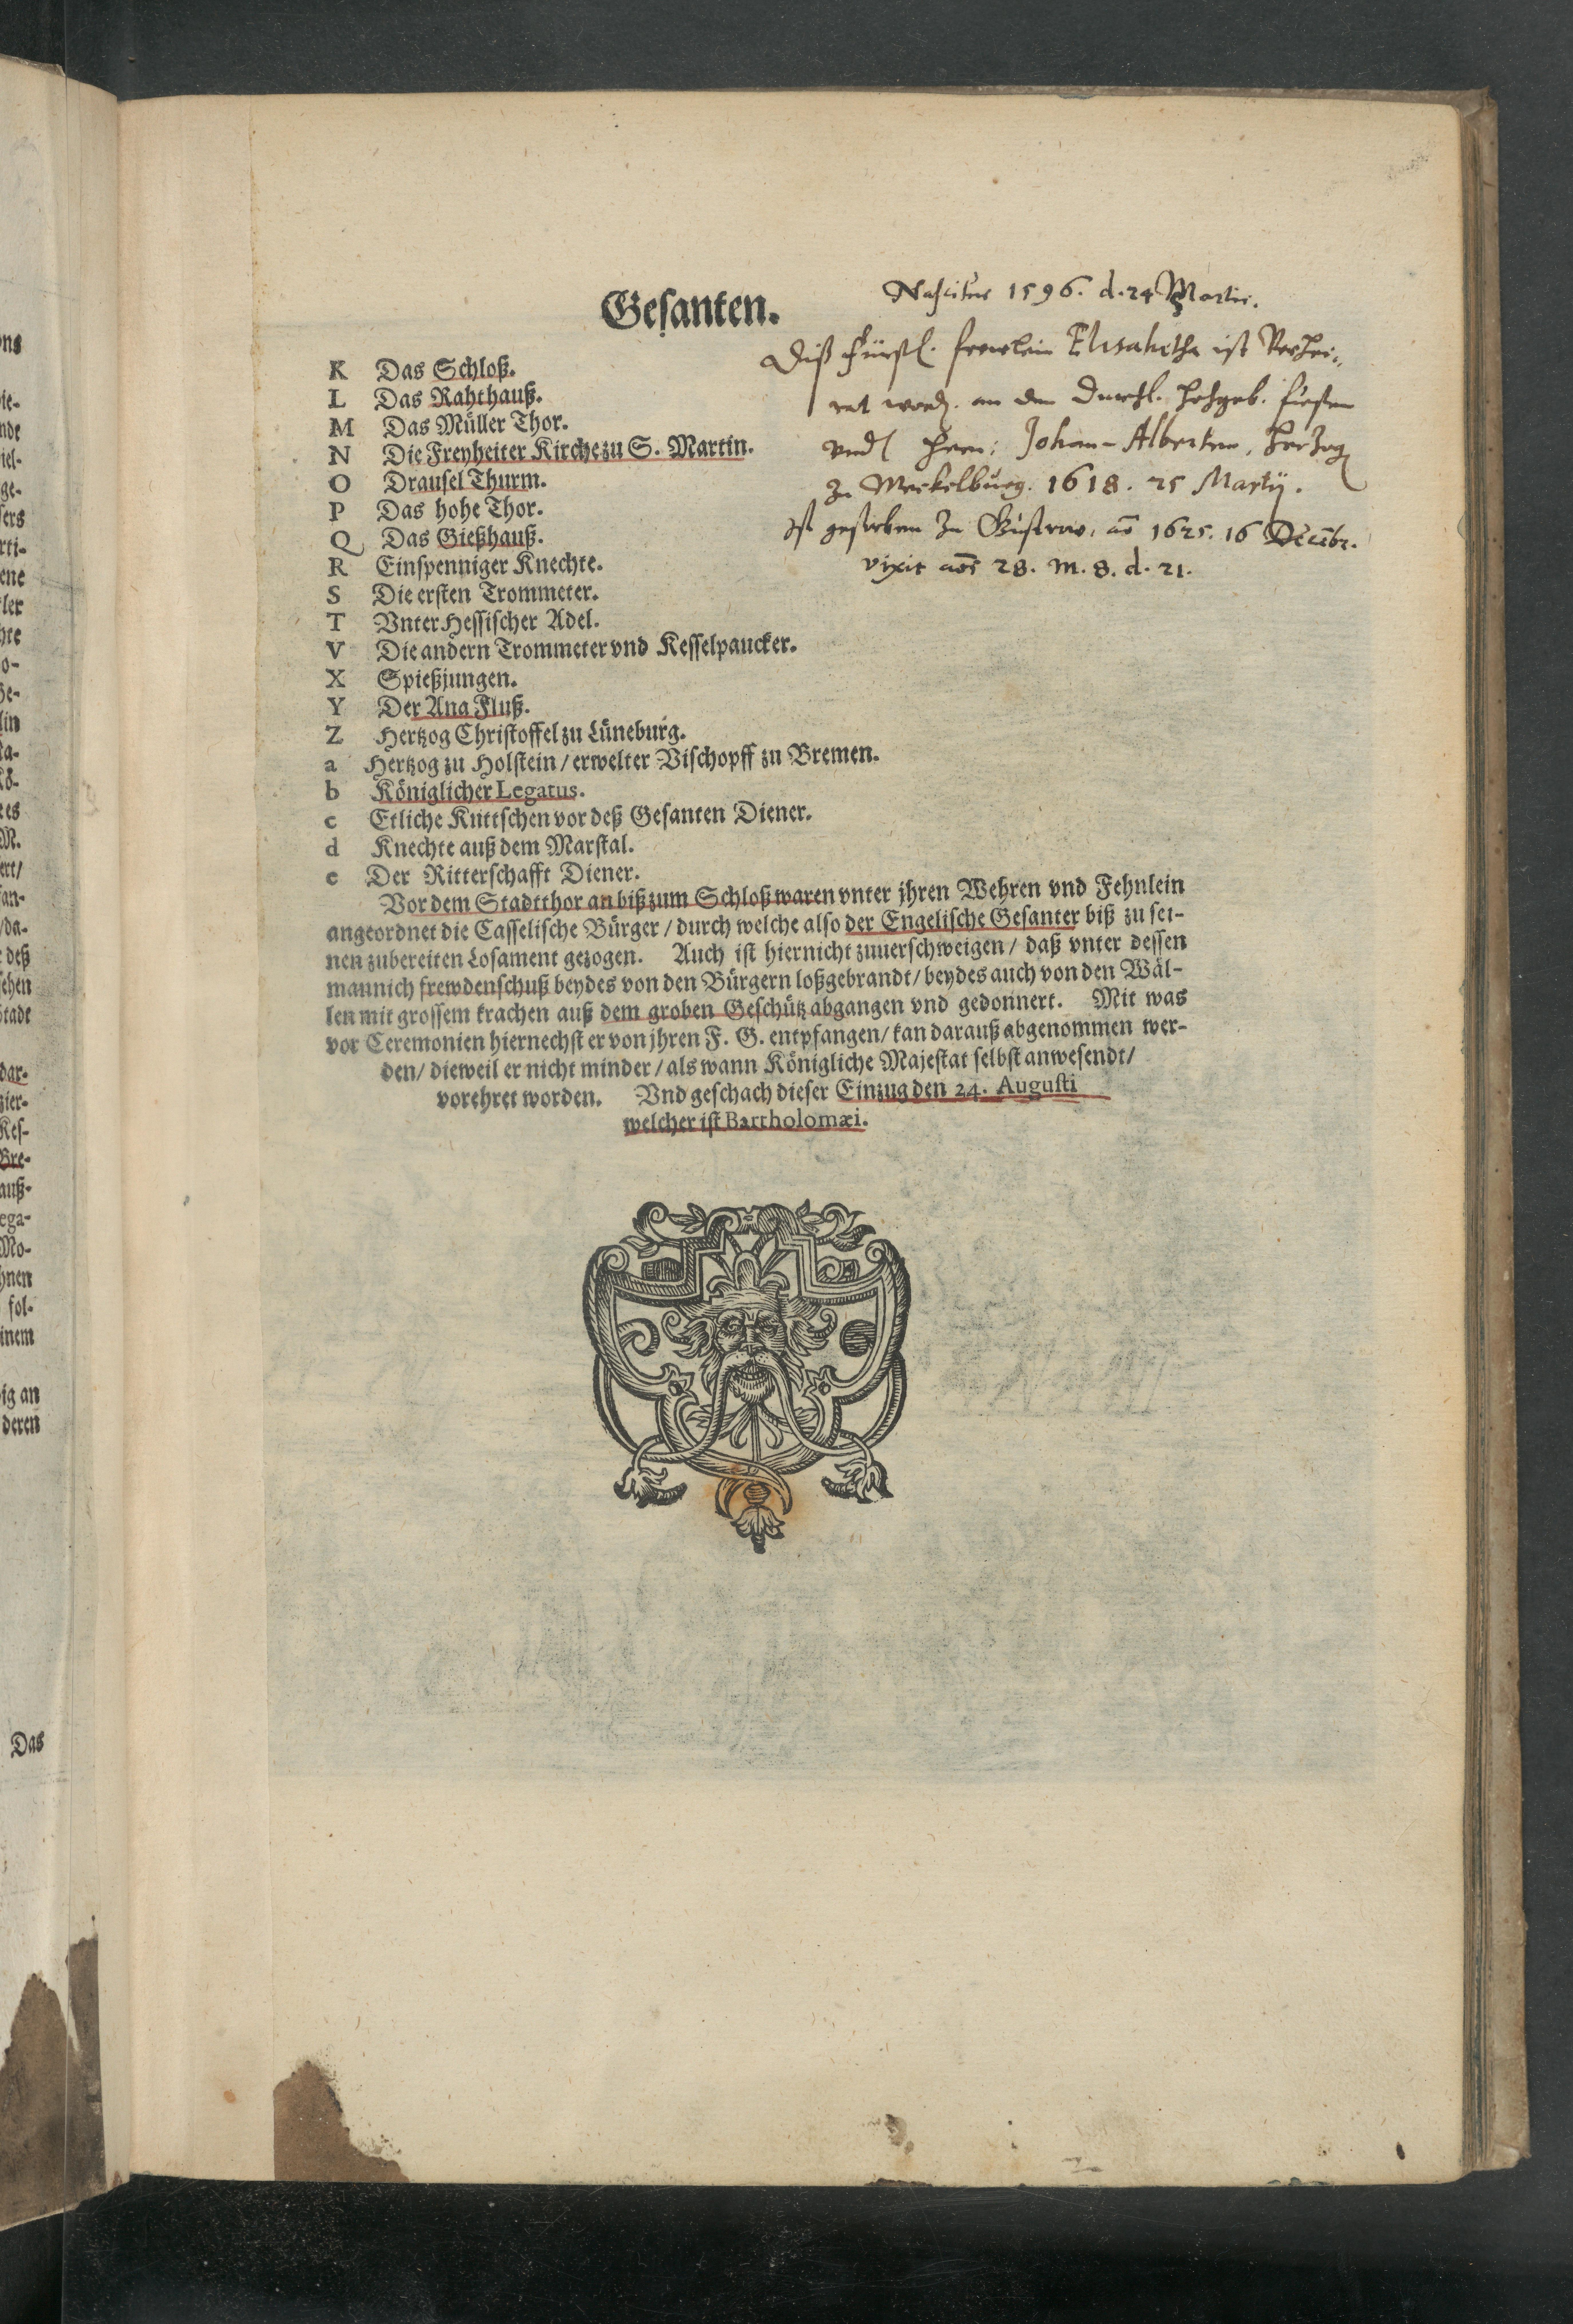 Gesanten.
Nascitur 1596. d. 24 Martii.
Diß Fürstl. frewlein Elisabetha ist Verhei-
rat word. an den Durchl. Hochgeb. fürsten
vnd Herrn: Johan-Alberten, Hertzog
zu Meckelburg. 1618. 25 Martij.
Ist gestorben zu Güstrow, aõ 1625. 16 Decēbr.
vixit aõs 28. m. 8. d. 21.
K Das Schloß.
L Das Rahthauß.
M Das Müller Thor.
N Die Freyheiter Kirche zu S. Martin.
O Drausel Thurm.
P Das hohe Thor.
Q Das Gießhauß.
R Einspenniger Knechte.
S Die ersten Trommeter.
T Vnter Hessischer Adel.
V Die andern Trommeter vnd Kesselpaucker.
X Spießjungen.
Y Der Ana Fluß.
Z Hertzog Christoffel zu Lüneburg.
a Hertzog zu Holstein / erwelter Bischopff zu Bremen.
b Königlicher Legatus.
c Etliche Kuttschen vor deß Gesanten Diener.
d Knechte auß dem Marstal.
e Der Ritterschafft Diener.
Vor dem Stadtthor an biß zum Schloß waren vnter jhren Wehren vnd Fehnlein
angeordnet die Casselische Bürger / durch welche also der Engelische Gesanter biß zu sei-
nen zubereiten Losament gezogen. Auch ist hiernicht zuuerschweigen / daß vnter dessen
mannich frewdenschuß beydes von den Bürgern loßgebrandt / beydes auch von den Wäl-
len mit grossem krachen auß dem groben Geschütz abgangen vnd gedonnert. Mit was
vor Ceremonien hiernechst er von jhren F. G. entpfangen / kan darauß abgenommen wer-
den / dieweil er nicht minder / als wann Königliche Majestat selbst anwesendt /
vorehret worden. Vnd geschach dieser Einzug den 24. Augusti
welcher ist Bartholomæi.
Das